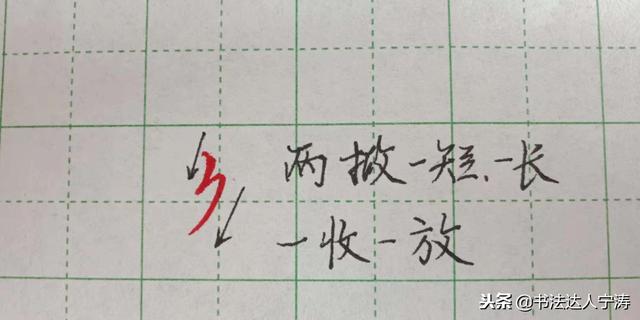 两撇一短、一长
一收一放
头条@书法达人宁涛